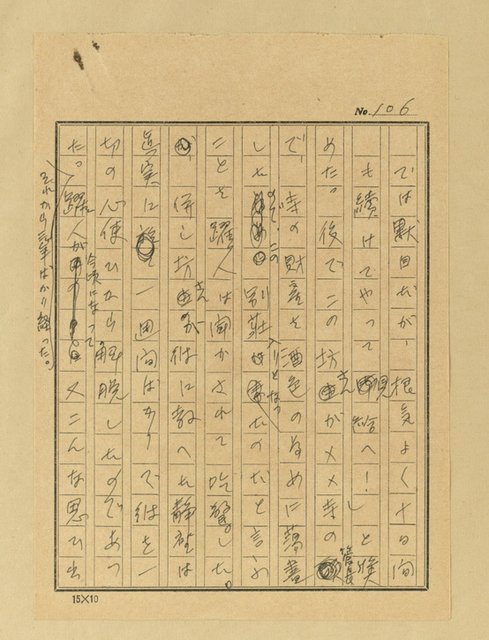 No. 106
では駄目だが、根気よく十日間
も続けてやって見給へ!」と嘆
めた。後でこの坊さんがメメ寺の管長
で、寺の財産を酒色のために蕩盡
したので、この別荘入りとなつたのだと言ふ
ことを躍人は聞かされて吃驚した。
が、併し坊さんが彼に教へた静座は
真実に一週間ばかりで彼を一
切の心使ひから解脱したのであつ
た。躍人が今頃になって又こんな思ひ出
それから一年ばかり経つた。
15×10